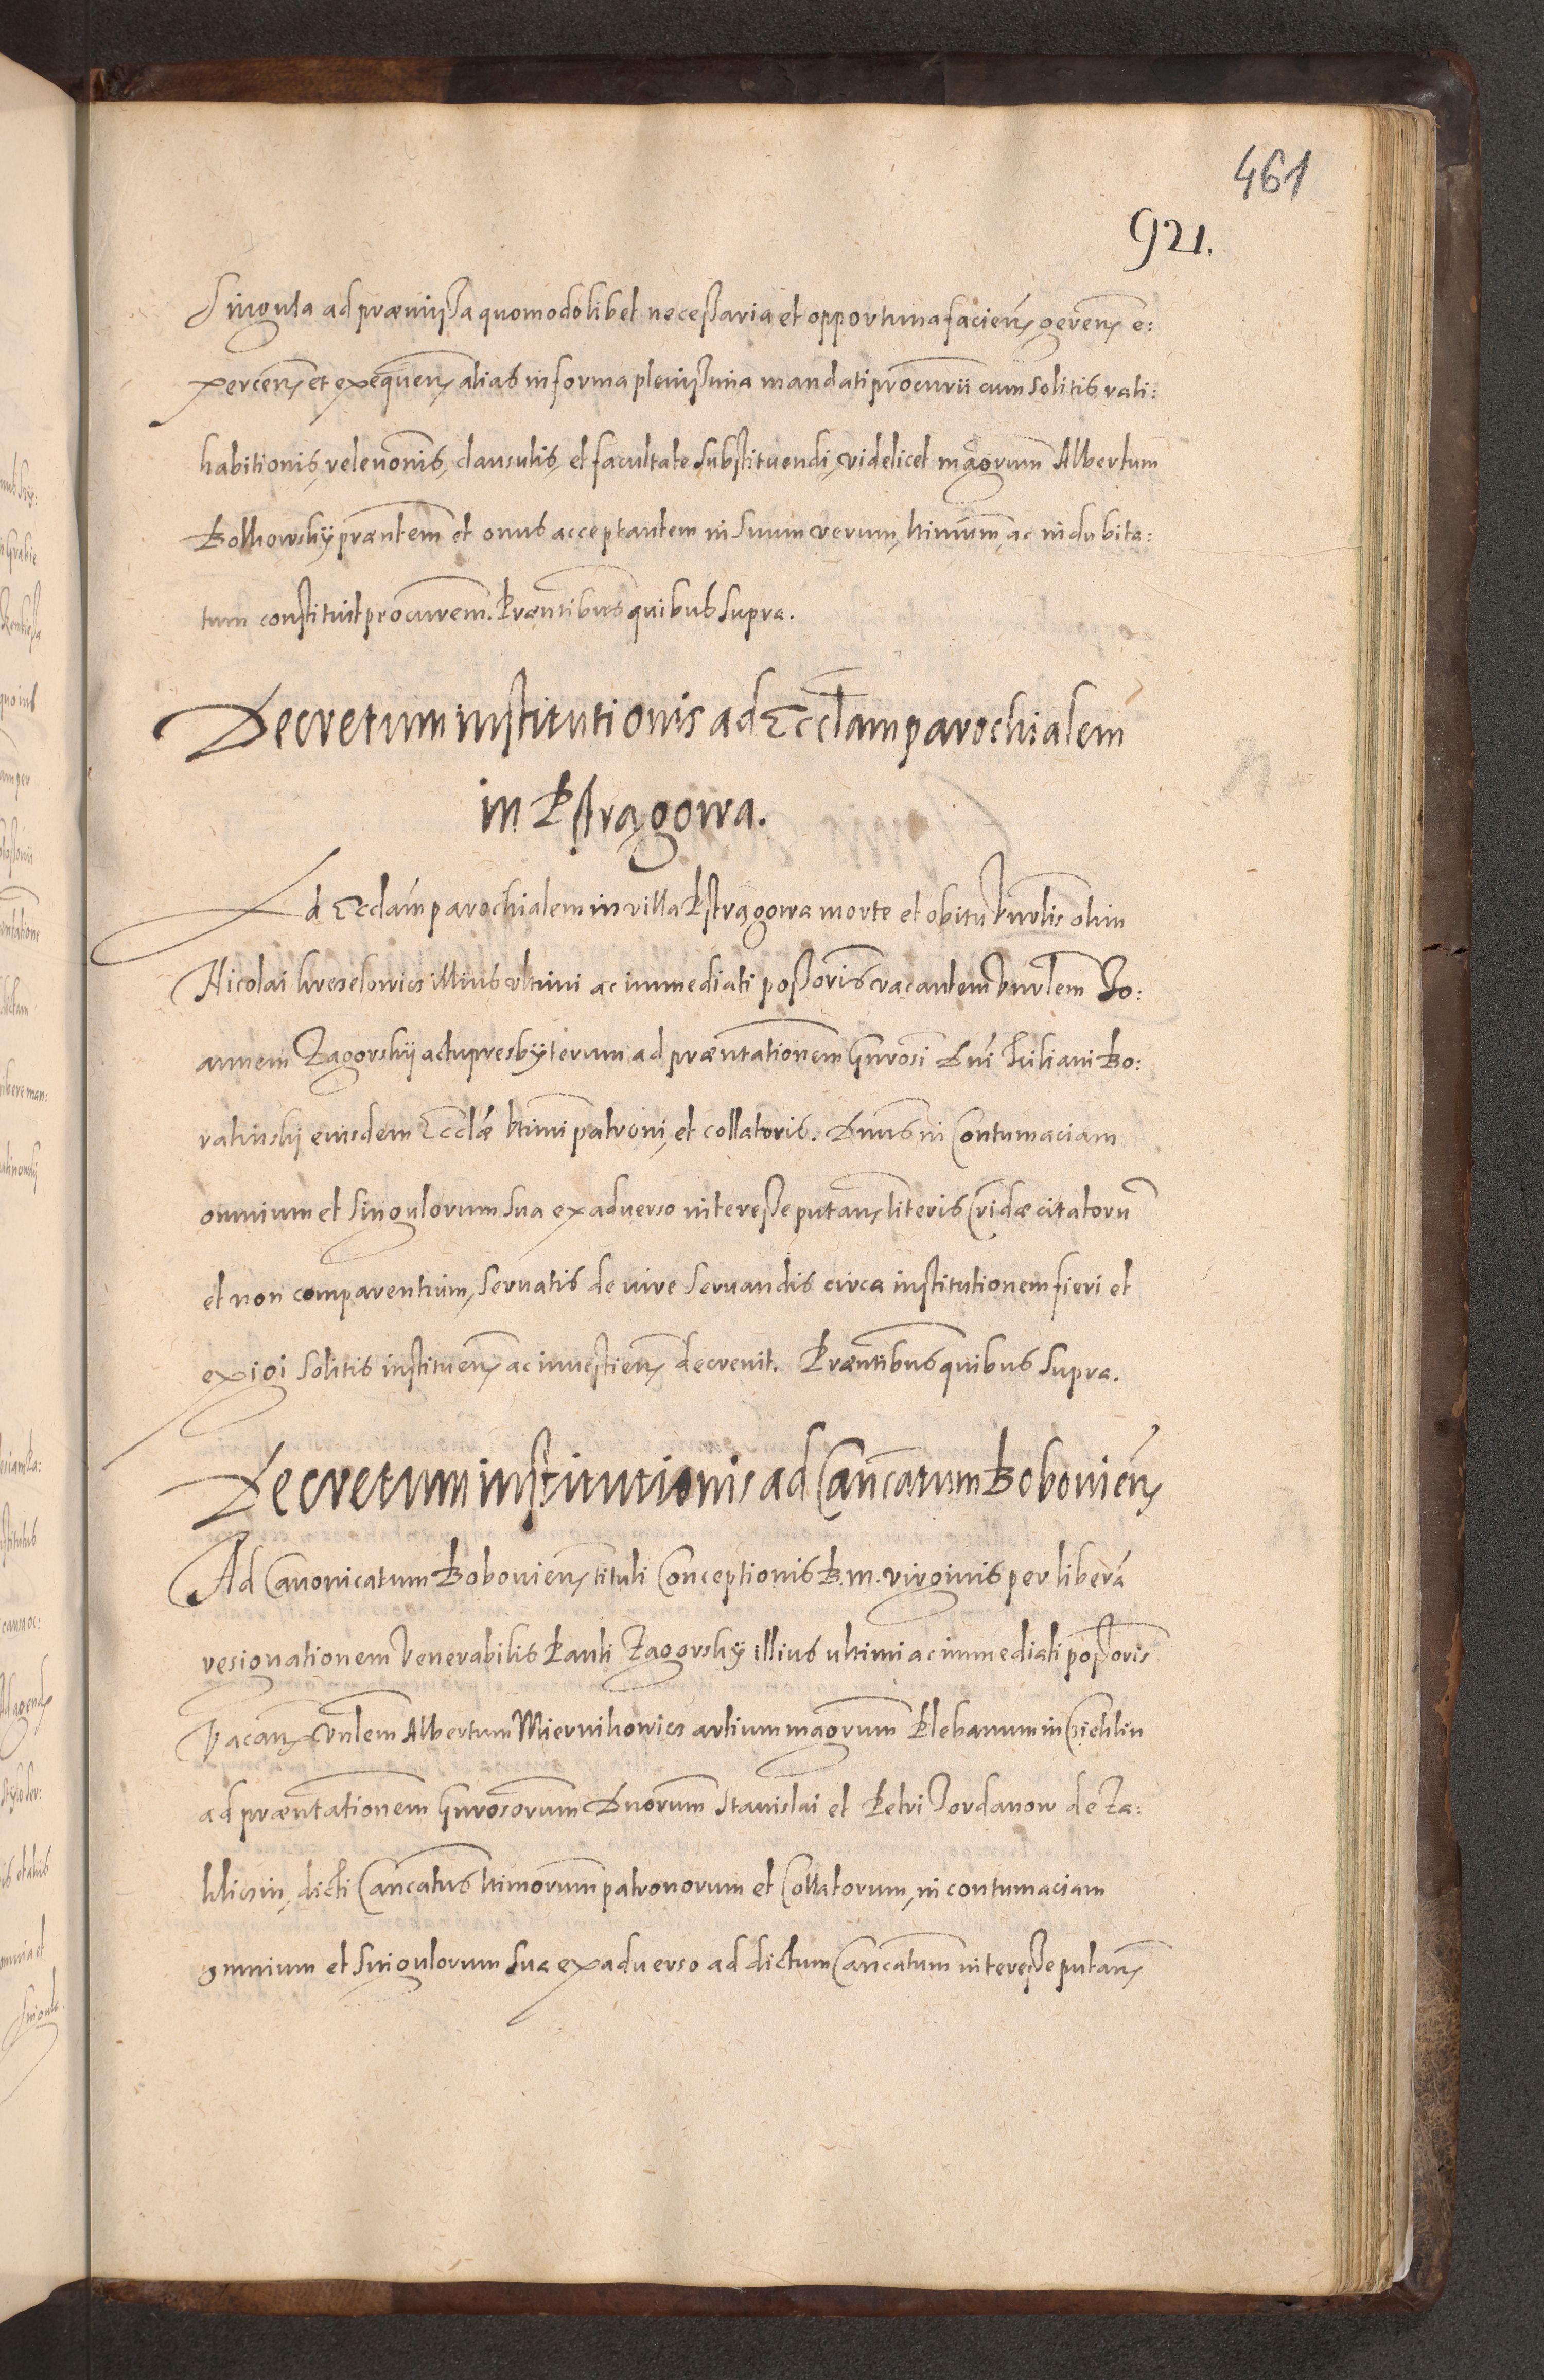 461
921.
Singula ad præmissa quomodolibet necessaria et opportuna facien̄ geren̄ e:
xercen̄ et exequen̄ alias in forma plenissima mandati procur̄ii cum solitis rati:
habitionis, relevōnis, clausulis, et facultate substituendi, videlicet magr̄um Albertum
præn̄tem et onus acceptantem in suum verum, ltimūm, ac indubita:
tum constituit procur̄em. Præn̄tibus quibus supra.
Decretum institutionis ad Eccl̄am parochialem
in Pstrągowa.
Ad Eccl̄am parochialem in villa Pstrągowa morte et obitu Vnrl̄is olim
Nicolai illius ultimi ac immediati possor̄is vacantem Vnrl̄em Jo:
annem Zagorskij actu presbyterum ad præn̄tationem Gnrosī Dnī Kiliani Bo:
ratinskj eiusdem Eccl̄æ ltimī patroni, et collatoris. Dnūs in contumaciam
omnium et singulorum sua ex adverso interesse putan̄ literis cridæ citatorū
et non comparentium, servatis de iure servandis circa institutionem fieri et
exigi solitis instituen̄ ac investien̄ decrevit. Præn̄tibus quibus supra.
Decretum institutionis ad Canc̄atum Bobovien̄
Ad Canonicatum Bobovien̄ tituli Conceptionis B. M. virginis per liberā
resignationem Venerabilis Pauli Zagorskij illius ultimi ac immediati possor̄is
Vacan̄ Vnl̄em Albertum Miernikowicz artium magr̄um Plebanum in Czieklin
ad præn̄tationem Gnrosōrum Dnōrum Stanislai et Petri Jordanow de Za:
kliczin, dicti Canc̄atus ltimōrum patronorum et Collatorum, in contumaciam
omnium et singulorum sua ex adverso ad dictum Canc̄atum interesse putan̄